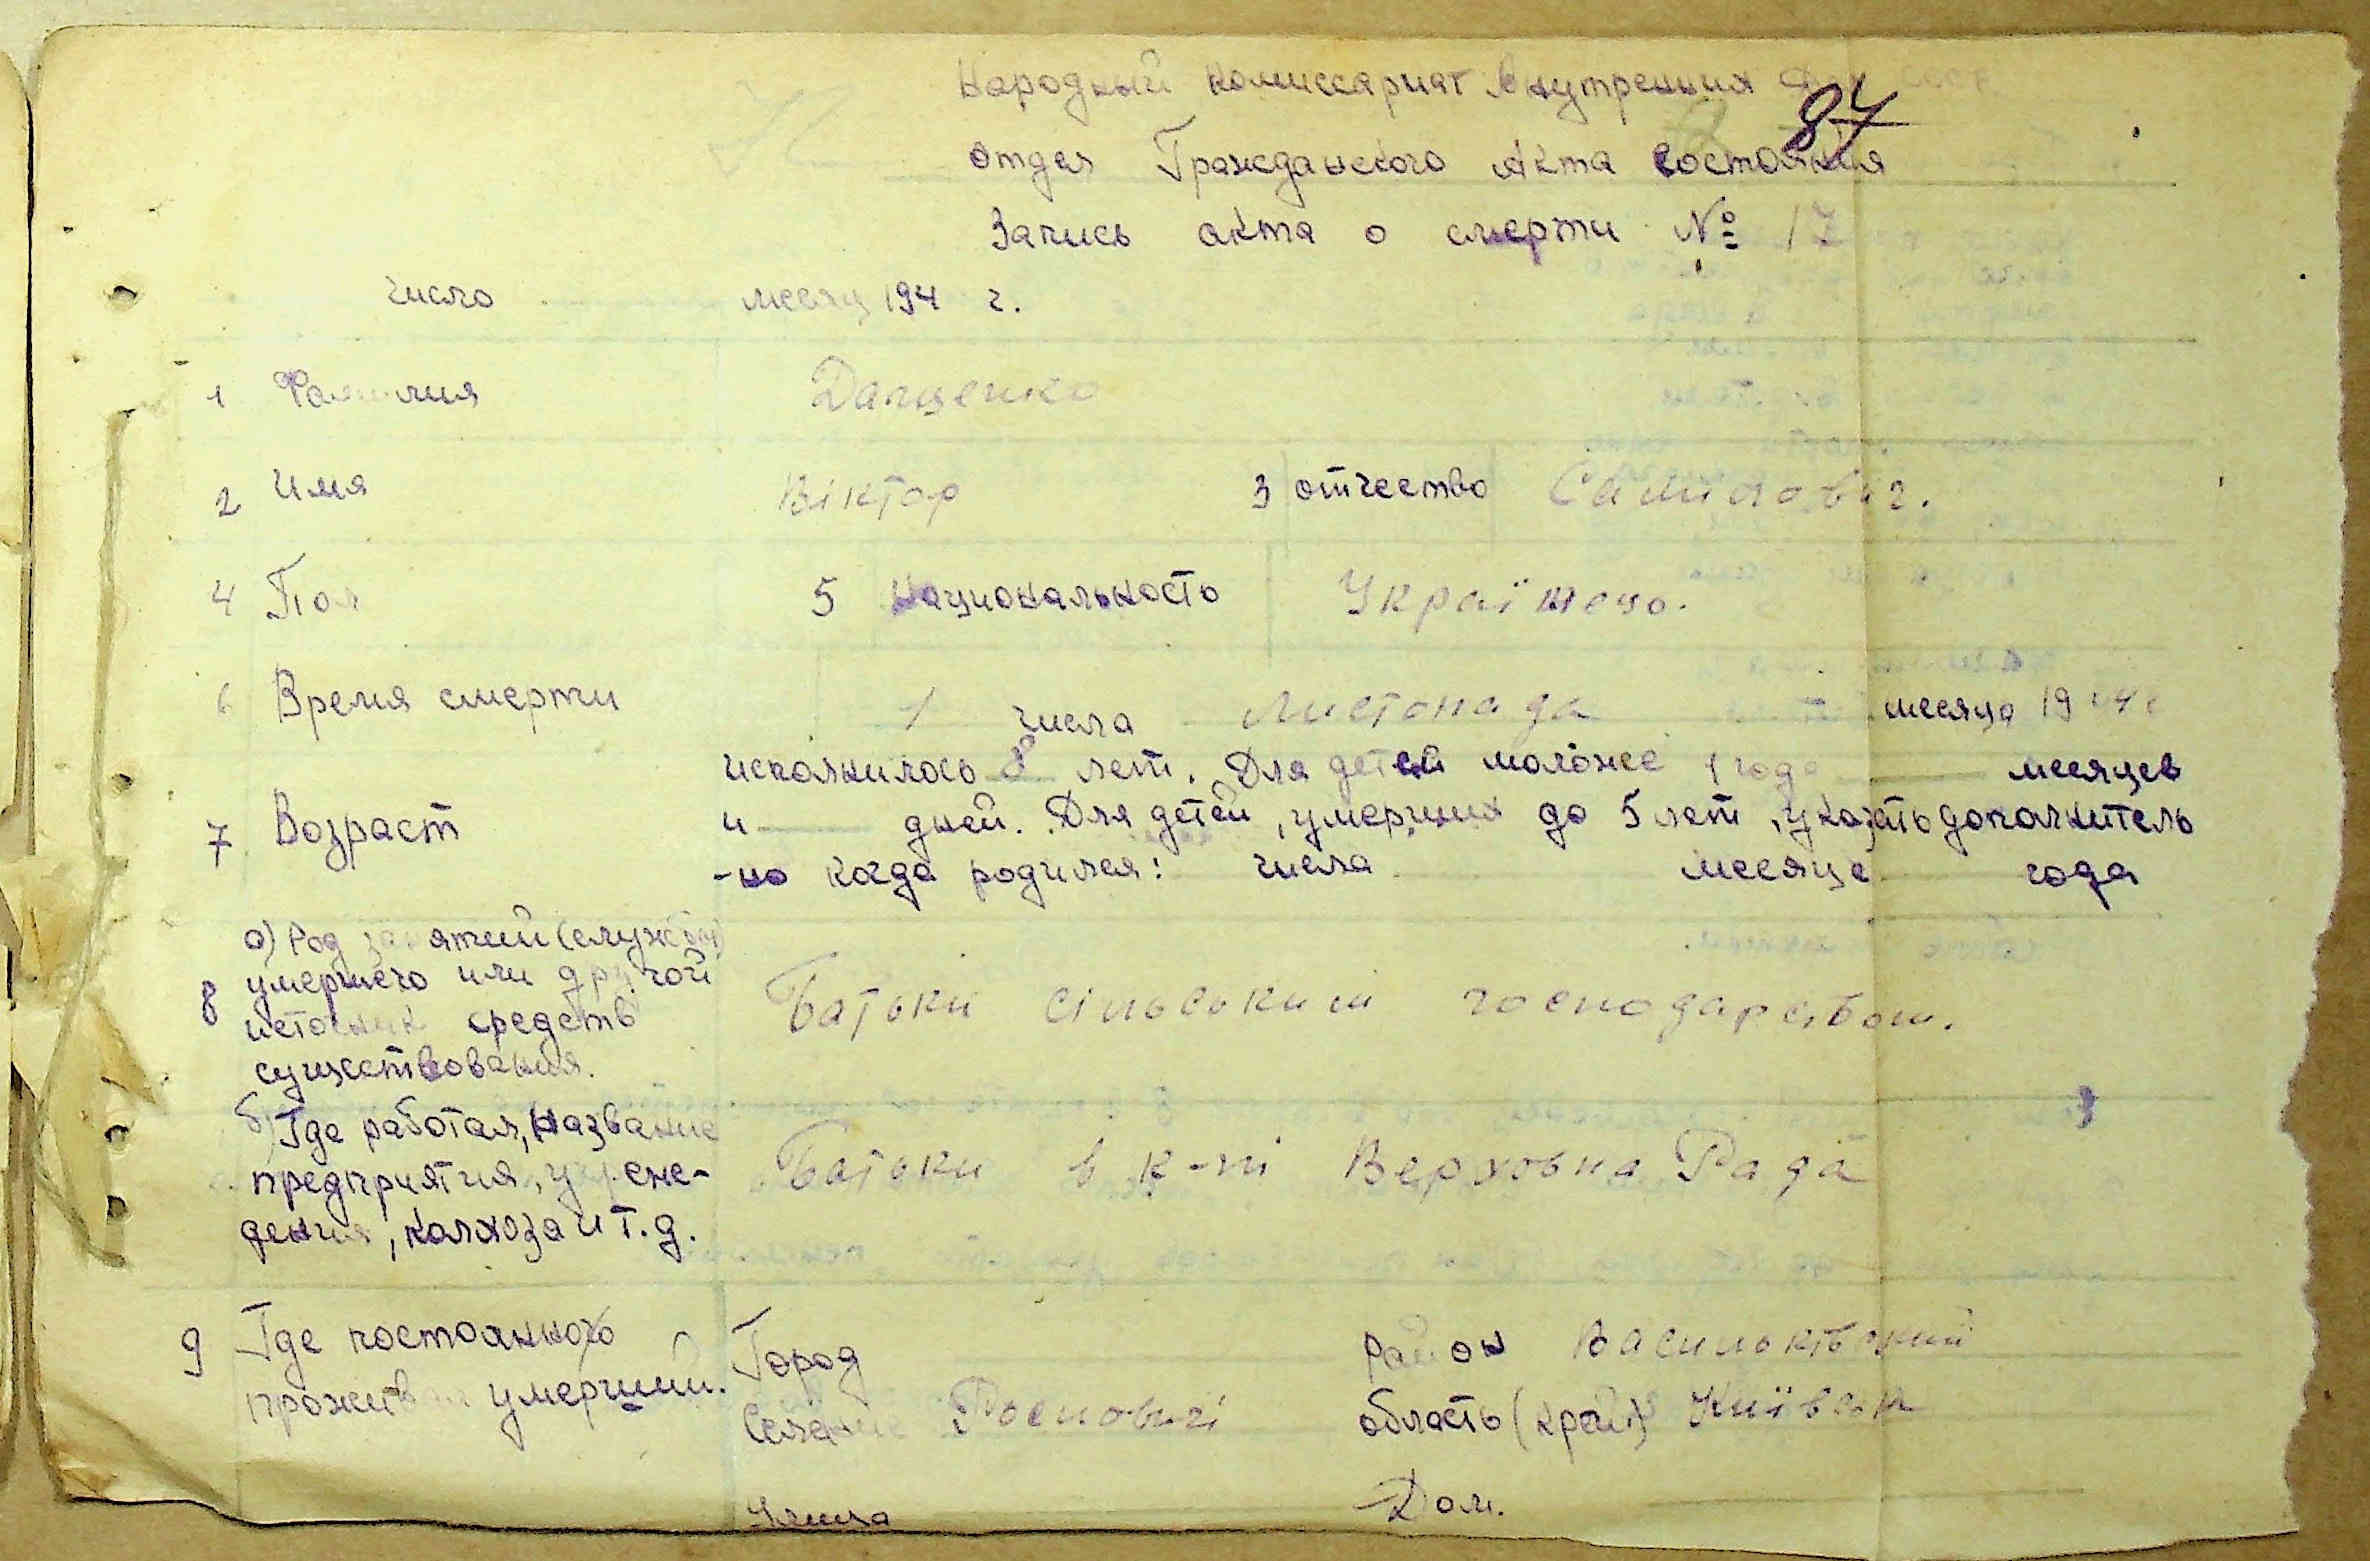 Народный Комиссариат Внутренния
87
отдел Гражданского Акта состояния
Запись акта о смерти № 17
число месяц 194 г.
1 Фамилия
2 Имя Віктор 3 отчество
4 Пол 5 Национальность
6 Время смерти 1 числа Листопада месяца 19
исполнилось 8 лет. Для детей моложе 1 года месяцев
7 Возраст и дней. Для детей, умерших до 5 лет, указать дополнитель
-но когда родился: числа месяце года
а) Род занятий (службы)
8 умершего или другой Батьки сільським господарством.
источник средств
существования.
б) Где работал, название
предприятия, учреже- Батьки в к-пі Верховна Рада
дения, колхоза и т.д.
9 Где постоянного Город Район
проживал умерший. Селение область (край) Київськ
Улица Дом.